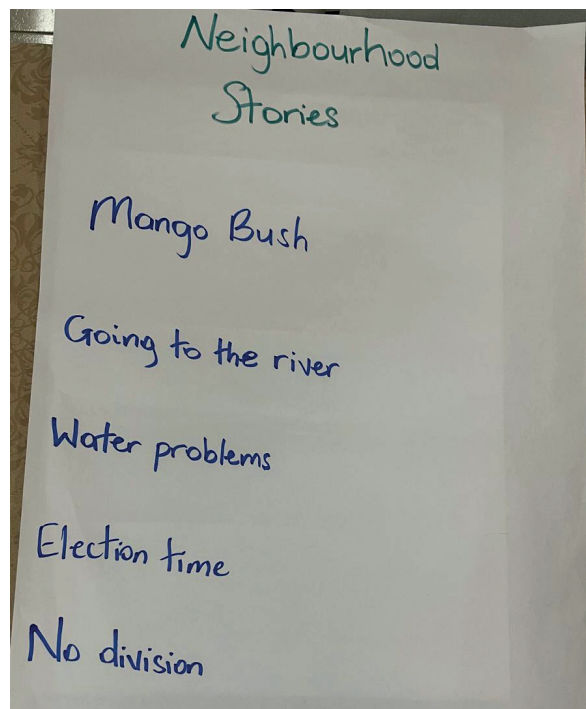 Neighbourhood
Stories
Mango Bush
Going to the river
Water problems
Election time
No division